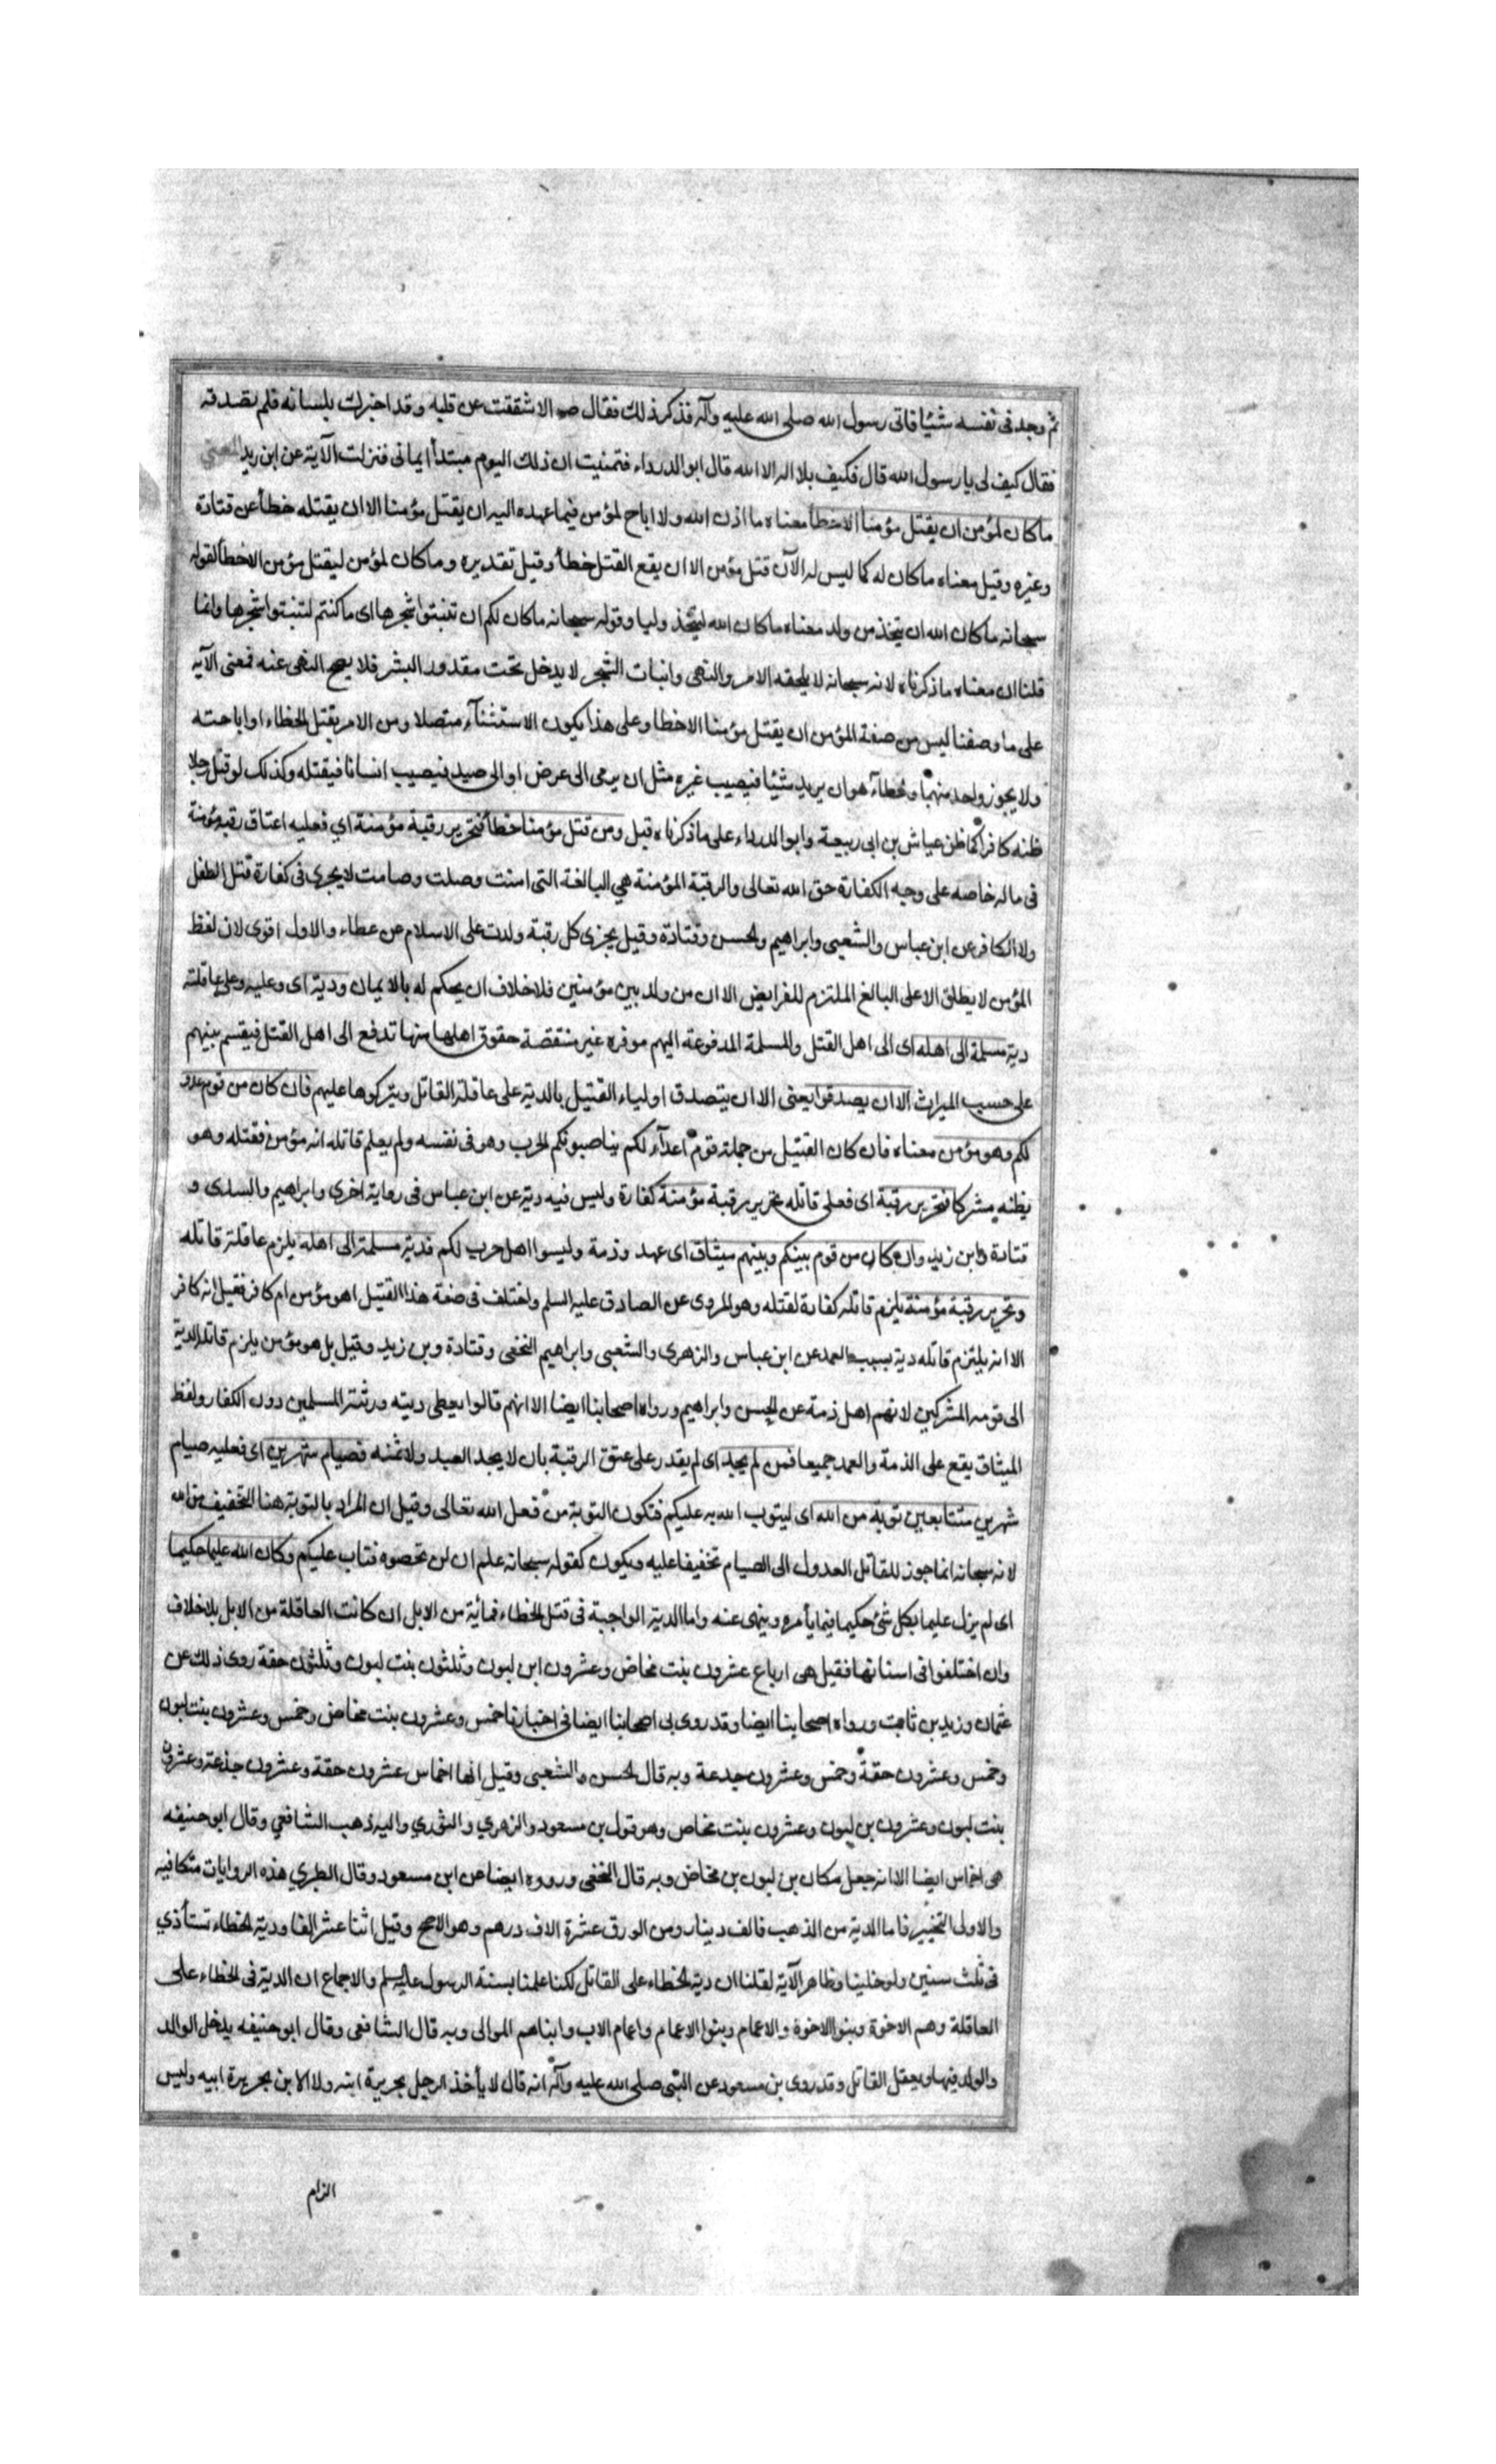 ثم وجد فى نفسه شيئا فاتى رسول الله صلى الله عليه وآله فذكر ذلك فقال ص الا شققت عن قلبه وقد اخبرك بلسانه فلم تصدقه
فقال كيف لى يا رسول الله قال فكيف بلا اله الا الله قال ابو الدرداء فتمنيت ان ذلك اليوم مبتدأ ايمانى فنزلت الآية عن ابن زيد المعنى
ما كان لمؤمن ان يقتل مؤمنا الا خطأ معناه ما اذن الله ولا اباح لمؤمن فيما عهده اليه ان يقتل مؤمنا الا ان يقتله خطأ عن قتادة
وغيره وقيل معناه ما كان له كما ليس له الآن قتل مؤمن الا ان يقع القتل خطأ وقيل تقديره وما كان لمؤمن ليقتل مؤمن الا خطأ لقوله
سبحانه ما كان الله ان يتخذ من ولد معناه ما كان الله ليتخذ وليا وقوله سبحانه ما كان لكم ان تنبتوا شجرها اى ما كنتم لتنبتوا شجرها وانما
قلنا ان معناه ما ذكرناه لانه سبحانه لا يلحقه الامر والنهى وانبات الشجر لا يدخل تحت مقدور البشر فلا يصح النهى عنه فمعنى الآية
على ما وصفنا ليس من صفة المؤمن ان يقتل مؤمنا الا خطا وعلى هذا يكون الاستثنآء متصلا ومن الامر بقتل الخطاء او اباحته
ولا يجوز واحد منهما والخطآء هو ان يريد شيئا فيصيب غيره مثل ان يرمى الى عرض او الى صيد فيصيب انسانا فيقتله وكذلك لو قتل رجلا
ظنه كافرا كما ظن عياش بن ابى ربيعة وابو الدرداء على ما ذكرناه قبل ومن قتل مؤمنا خطأ فتحرير رقبة مؤمنة اي فعليه اعتاق رقبة مؤمنة
فى ماله خاصه على وجه الكفارة حق الله تعالى والرقبة المؤمنة هي البالغة التى امنت وصلت وصامت لا يجرى فى كفارة قتل الطفل
ولا الكافر عن ابن عباس والشعبى وابراهيم والحسن وقتادة وقيل يجزى كل رقبة ولدت على الاسلام عن عطاء والاول اقوى لان لفظ
المؤمن لا يطلق الا على البالغ الملتزم للفرايض الا ان من ولد بين مؤمنين فلا خلاف ان يحكم له بالايمان ودية اى وعليه وعلى عاقلته
دية مسلمة الى اهله اى الى اهل القتل والمسلمة المدفوعة اليهم موفره غير منتقصة حقوق اهلها منها تدفع الى اهل القتل فيقسم بينهم
على حسب الميراث الا ان يصدقوا يعنى الا ان يتصدق اولياء القتيل بالدية على عاقلة القاتل ويتركوها عليهم فان كان من قوم عدو
لكم وهو مؤمن معناه فان كان القتيل من جملة قوم اعدآء لكم يناصبونكم الحرب وهو فى نفسه ولم يعلم قاتله انه مؤمن فقتله وهو
يظنه مشركا فتحرير رقبة اى فعلى قاتله تحرير رقبة مؤمنة كفارة وليس فيه دية عن ابن عباس فى رواية اخرى وابراهيم والسدى و
قتادة وابن زيد وان كان من قوم بينكم وبينهم ميثاق اى عهد وذمة وليسوا اهل حرب لكم فدية مسلمة الى اهله يلزم عاقلة قاتله
وتحرير رقبة مؤمنة يلزم قاتله كفارة لقتله وهو المروى عن الصادق عليه السلم واختلف فى صفة هذا القتيل اهو مؤمن ام كافر فقيل انه كافر
الا انه يلتزم قاتله دية بسبب العهد عن ابن عباس والزهرى والشعبى وابراهيم النخفى وقتادة وبن زيد وقيل بل هو مؤمن يلزم قاتله الدية
الى قومه المشركين لانهم اهل ذمة عن الحسن وابراهيم ورواه اصحابنا ايضا الا انهم قالوا يعطى ديته ورثته المسلمين دون الكفار ولفظ
الميثاق يقع على الذمة والعهد جميعا فمن لم يجد اى لم يقدر على عتق الرقبة بان لا يجد العبد ولا ثمنه فصيام شهرين اى فعليه صيام
شهرين متتابعين توبة من الله اى ليتوب الله به عليكم فتكون التوبة من فعل الله تعالى وقيل ان المراد بالتوبة هنا التخفيف من الله
لانه سبحانه انما جوز للقاتل العدول الى الصيام تخفيفا عليه ويكون كقوله سبحانه علم ان لن تحصوه فتاب عليكم وكان الله عليما حكيما
اى لم يزل عليما بكل شئ حكيما فيما يأمره وينهى عنه واما الدية الواجبة فى قتل الخطاء فمائة من الابل ان كانت العاقلة من الابل بلا خلاف
وان اختلفوا فى اسنانها فقيل هى ارباع عشرون بنت مخاض وعشرون ابن لبون وثلثون بنت لبون وثلثون حقة روى ذلك عن
عثمان وزيد بن ثابت ورواه اصحابنا ايضا وقد روى لى اصحابنا ايضا فى اخبارنا خمس وعشرون بنت مخاض وخمس وعشرون بنت لبون
وخمس وعشرون حقة وخمس وعشرون جدعة وبه قال الحسن والشعبى وقيل انها اخماس عشرون حقة وعشرون جذعة وعشرون
بنت لبون وعشرون بن لبون وعشرون بنت مخاص وهو قول بن مسعود والزهري والثوري واليه ذهب الشافعي وقال ابو حنيفه
هى اخماس ايضا الا انه جعل مكان بن لبون بن مخاض وبه قال النخفى ورووه ايضا عن ابن مسعود وقال الطبري هذه الروايات متكافيه
والاولى التخيير فاما الدية من الذهب فالف دينار ومن الورق عشرة الاف درهم وهو الاصح وقيل اثنا عشر الفا ودية الخطاء تستأذي
فى ثلث سنين ولو خلينا وظاهر الآية لقلنا ان دية الخطاء على القاتل لكنا علمنا بسنة الرسول عليه السلم والاجماع ان الدية فى الخطاء على
العاقلة وهم الاخوة وبنوا الاخوة والاعمام وبنوا الاعمام واعمام الاب وابناهم الموالى وبه قال الشافعى وقال ابو حنيفه يدخل الوالد
والولد فيها ويعقل القاتل وقد روى بن مسعود عن النبى صلى الله عليه وآله انه قال لا يأخذ الرجل بجريرة ابنه ولا الابن بجريرة ابيه وليس
الزام